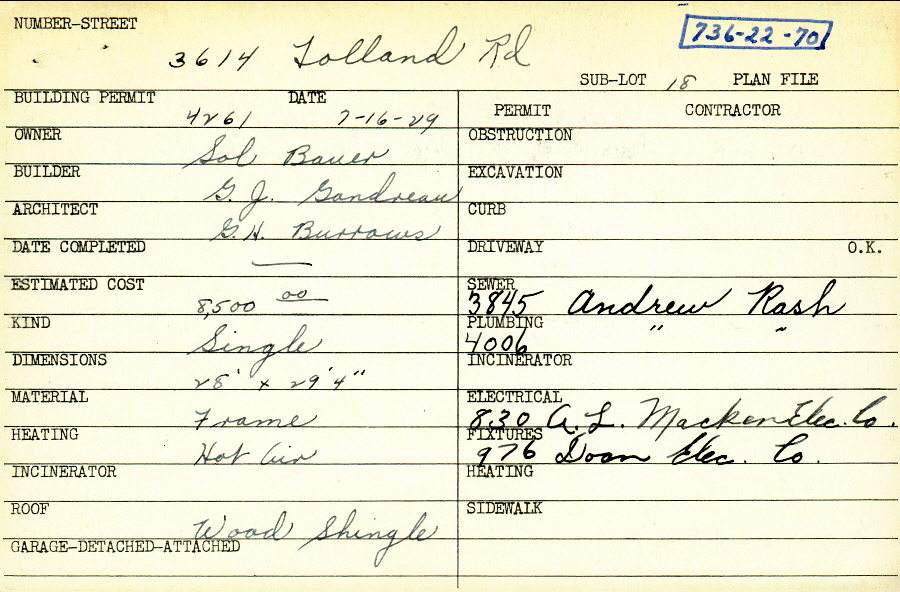 NUMBER-STREET
736-22-70
3614 Tolland Rd
SUB-LOT 18 PLAN FILE
BUILDING PERMIT DATE
4261 7-16-29
PERMIT CONTRACTOR
OWNER
Sol Bauer
OBSTRUCTION
BUILDER
G. J. Gondreau
EXCAVATION
ARCHITECT
G. H. Burrows
CURB
DATE COMPLETED
—
DRIVEWAY O.K.
ESTIMATED COST
8,500 00
SEWER
3845 Andrew Rash
KIND
Single
PLUMBING
4006 " "
DIMENSIONS
28' x 29'4"
INCINERATOR
MATERIAL
Frame
ELECTRICAL
830 A. L. Macken Elec. Co.
HEATING
Hot Air
FIXTURES
976 Doan Elec. Co.
INCINERATOR
HEATING
ROOF
Wood Shingle
SIDEWALK
GARAGE-DETACHED-ATTACHED